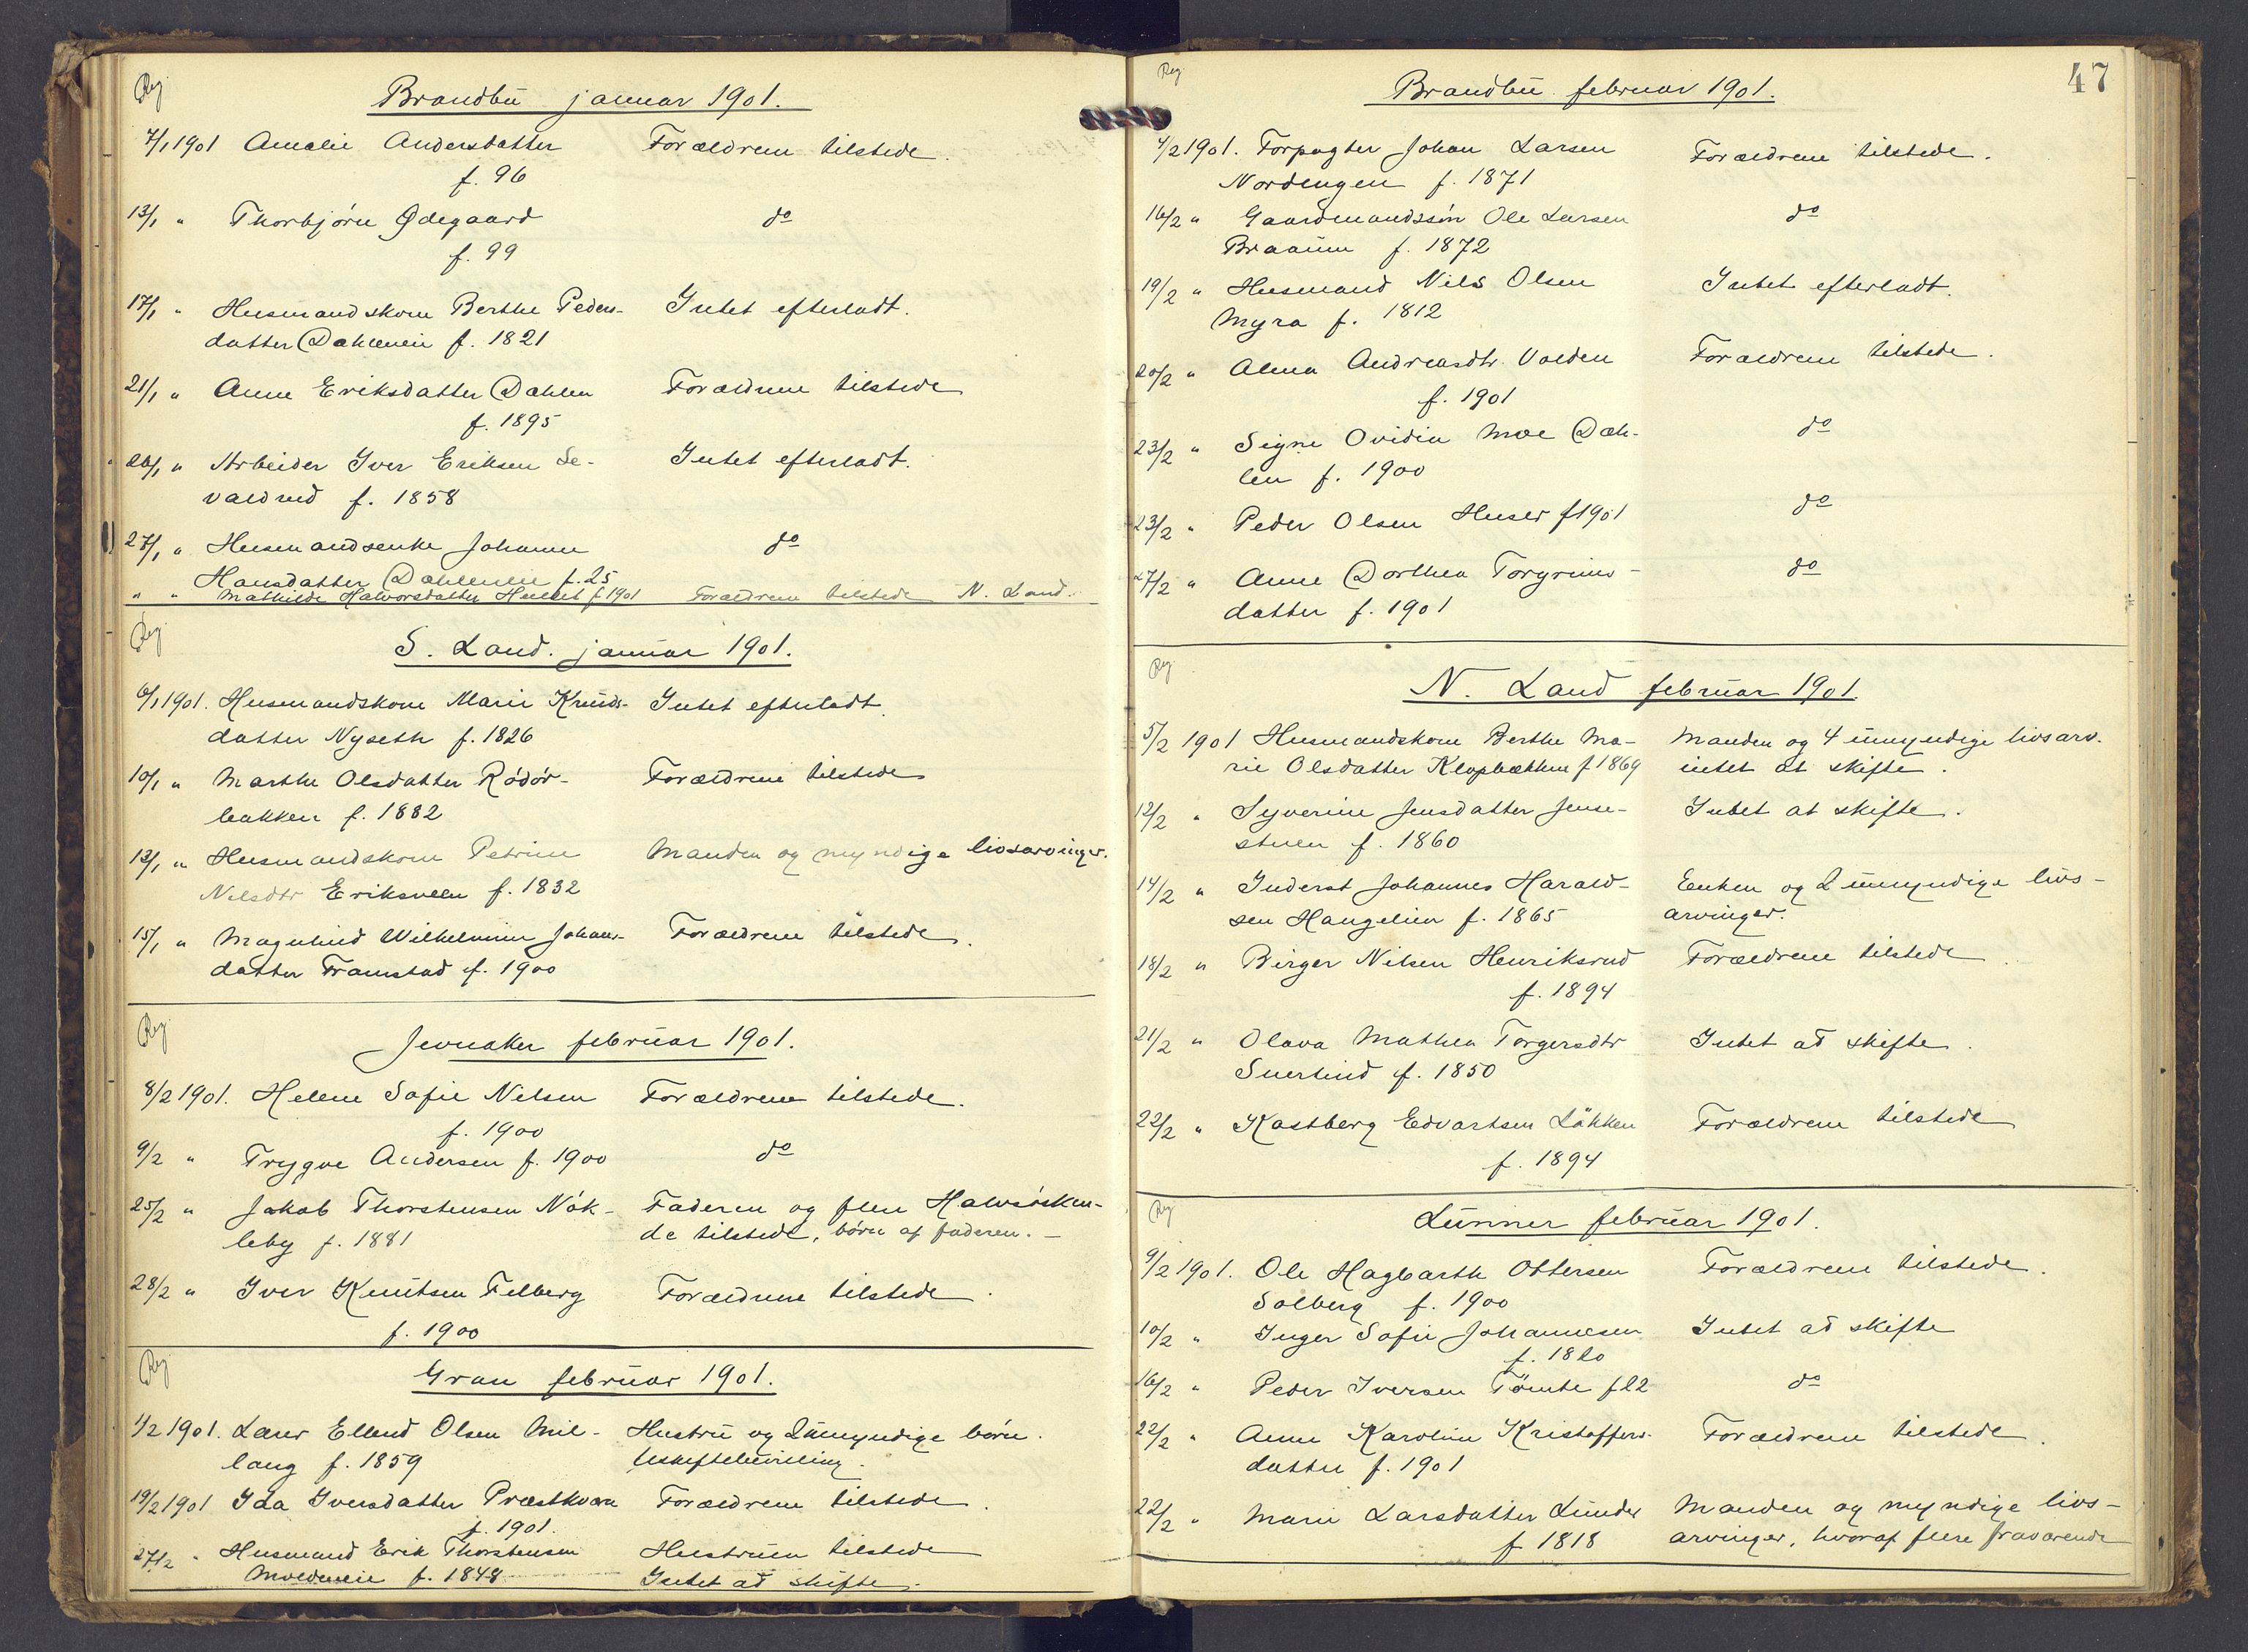 Reg
Brandbu januar 1901.
7/1 1901 Amalie Andersdatter Forældrene tilstede.
f. 96
13/1 " Thorbjørn Ødegaard do
f. 99
17/1 " Husmandskone Berthe Peders- Intet efterladt.
datter Dahleneie f. 1821
21/1 " Anne Eriksdatter Dahlen Forældrene tilstede
f. 1895
26/1 " Arbeider Iver Eriksen Se- Intet efterladt.
valdrud f. 1858
27/1 " Husmandsenke Johanne do
Hansdatter Dahleneie f. 25
" " Mathilde Halvorsdatter f 1901 Forældrene tilstede N. Land.
Reg
S. Land. januar 1901.
6/1 1901. Husmandskone Marie Knuds- Intet efterladt.
datter Nyseth f. 1826
10/1 " Marthe Olsdatter Rödör- Forældrene tilstede
bakken f. 1882
13/1 " Husmandskone Petrine Manden og myndige livsarvinger.
Nilsdtr Eriksveen f. 1832
15/1 " Magnhild Wilhelmine Johans- Forældrene tilstede.
datter Framstad f. 1900
Reg
Jevnaker februar 1901.
8/2 1901. Helene Sofie Nilsen Forældrene tilstede.
f. 1900
9/2 " Trygve Andersen f. 1900 do
25/2 " Jakob Thorstensen Nök- Faderen og flere Halvsösken-
leby f. 1881 de tilstede, börn af faderen.
28/2 " Iver Knutsen Felberg Forældrene tilstede.
f. 1900
Reg
Gran februar 1901.
1/2 1901. Lars Ellend Olsen Mil- Hustru og 2 umyndige börn.
lang f. 1859 Uskiftebevilling.
19/2 1901 Ida Iversdatter Præstkværn Forældrene tilstede.
f. 1901.
27/2 " Husmand Erik Thorstensen Hustruen tilstede
Moldeneie f. 1848 Intet ad skifte.
47
Reg
Brandbu februar 1901.
4/2 1901. Forpagter Johan Larsen Forældrene tilstede.
Nordengen f. 1871
16/2 " Gaardmandssön Ole Larsen do
Braaum f. 1872
19/2 " Husmand Nils Olsen Intet efterladt.
Myra f. 1812
20/2 " Alma Andreasdtr. Volden Forældrene tilstede.
f. 1901
23/2 " Signe Ovidia Moe Dah- do
len f. 1900
23/2 " Peder Olsen Huser f 1901 do
27/2 " Anne Dorthea Torgrims- do
datter f. 1901
Reg
N. Land februar 1901.
5/2 1901 Husmandskone Berthe Ma- Manden og 4 umyndige livsarv.
rie Olsdatter Klopbakken f 1869 intet at skifte.
12/2 " Syverine Jensdatter Jense- Intet at skifte.
stuen f. 1860
14/2 " Inderst Johannes Harald- Enken og 2 umyndige livs-
sen Haugelien f. 1865 arvinger.
18/2 " Birger Nilsen Henriksrud Forældrene tilstede.
f. 1894
21/2 " Olava Mathea Torgersdtr Intet ad skifte.
Snertind f. 1850
22/2 " Kastberg Edvartsen Lökken Forældrene tilstede
f. 1894
Reg
Lunner februar 1901.
9/2 1901. Ole Hagbarth Ottersen Forældrene tilstede.
Solberg f. 1900
10/2 " Inger Sofie Johannesen Intet ad skifte
f. 1820
16/2 " Peder Iversen Tömte f 22 do
22/2 " Anne Karoline Kristoffers- Forældrene tilstede.
datter f. 1901
22/2 " Marie Larsdatter Lunder Manden og myndige livs-
f 1818 arvinger, hvoraf flere fraværende